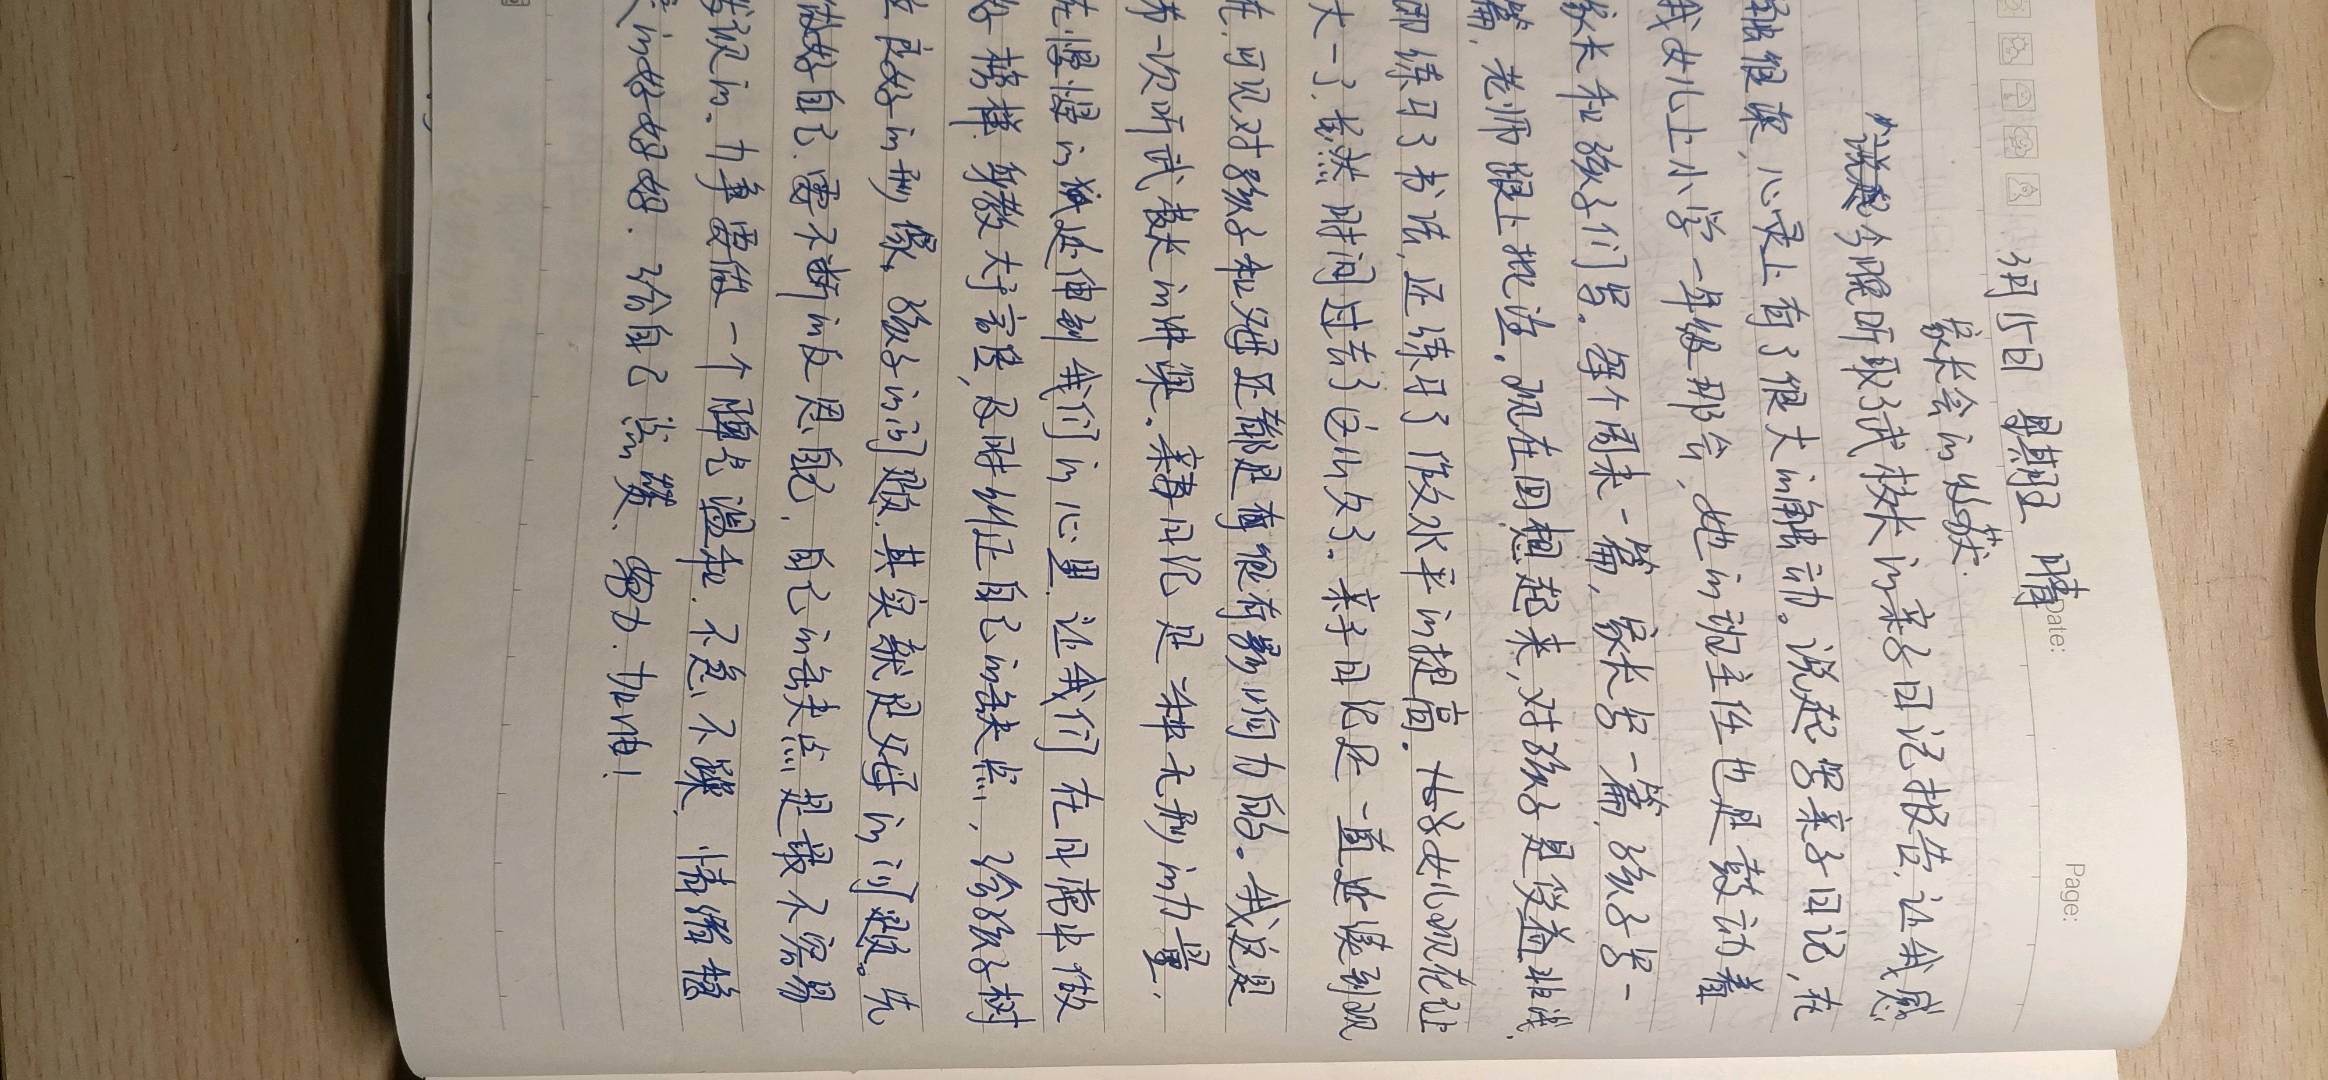 Date: Page:
3月15日 星期五 晴
家长会的收获.
"说起今晚听取了武校长的亲子日记报告,让我感
触很深,心灵上有了很大的触动。说起写亲子日记,在
我女儿上小学一年级那会,她的班主任也是鼓动着
家长和孩子们写。每个周末一篇,家长写一篇,孩子写一
篇,老师跟上批注。现在回想起来,对孩子是受益非浅,
即练习了书法,还练习了作文水平的提高.女儿现在
大一了,当然时间过去了这么久了。亲子日记是一直延续到现
在,可见对孩子和父母还都是有很有影响力的。我这是
第一次听武校长的讲课。亲子日记是一种无形的力量,
在慢慢的延伸到我们的心里,让我们在日常中做
好榜样,身教大于言传,及时纠正自己的缺点,给孩子树
立良好的形像。孩子的问题,其实就是父母的问题。先
做好自己,需不断的反思自己,自己的缺点是最不容易
发现的。力争要做一个脾气温和,不急不躁,情绪稳
定的好妈妈.给自己点赞、努力.加油!